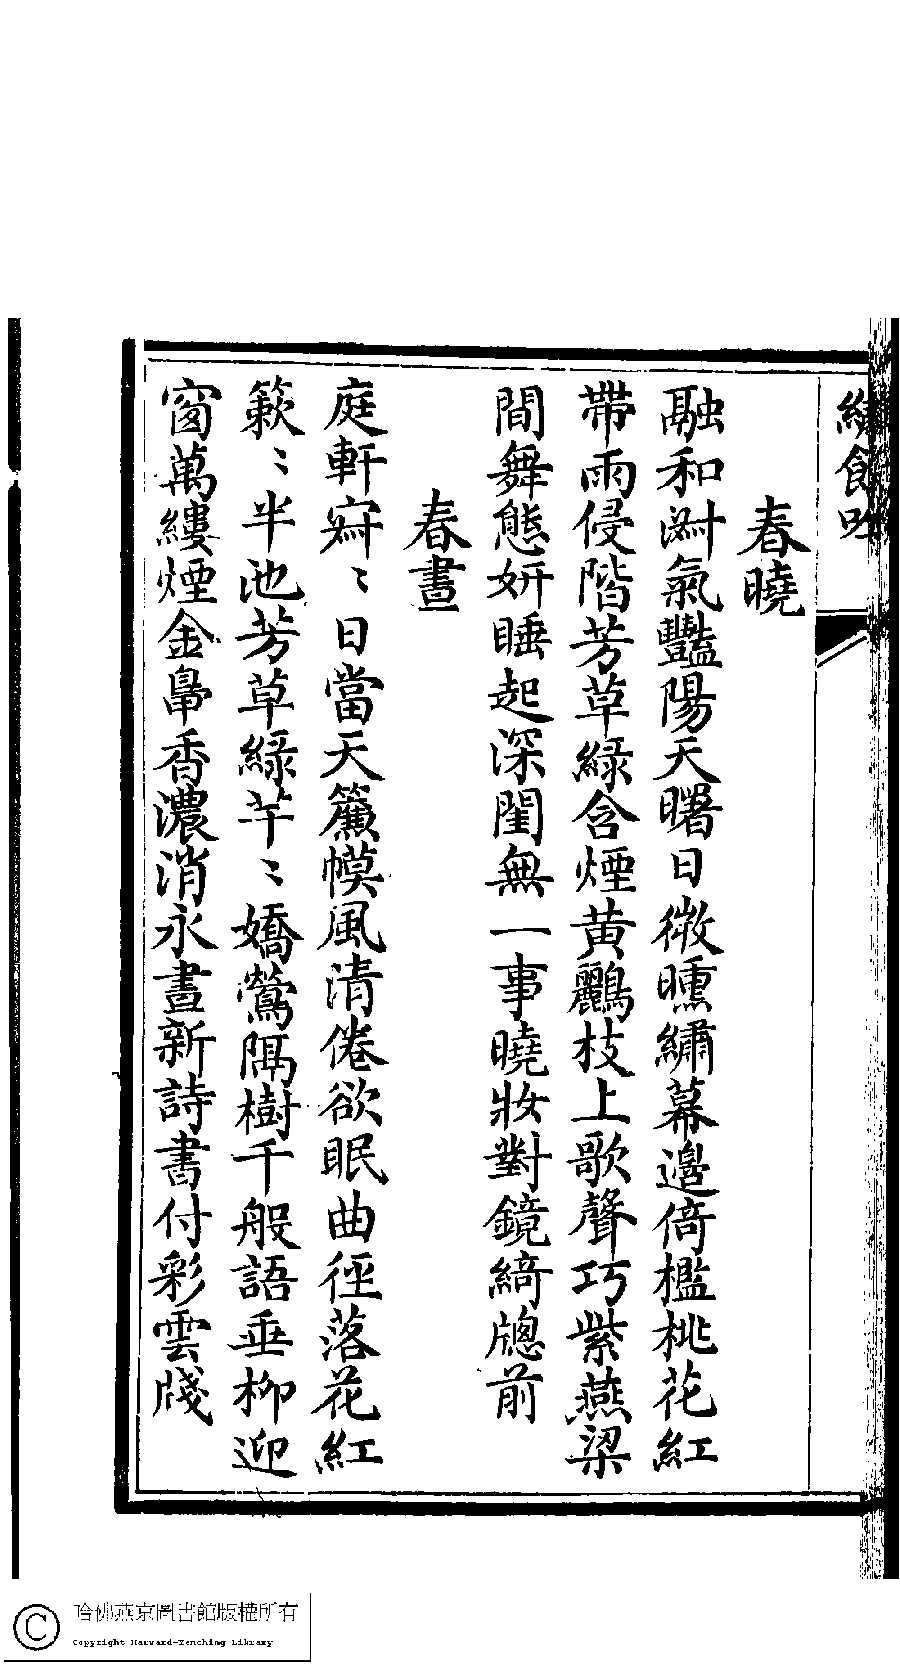 繡餘吟
春曉
融和淑氣豔陽天曙日微曛繡幕邊倚檻桃花紅
帶雨侵階芳草綠含煙黃鸝枝上歌聲巧紫燕梁
間舞態妍睡起深閨無一事曉妝對鏡綺牕前
春晝
庭軒寂〻日當天簾幙風清倦欲眠曲徑落花紅
簌〻半池芳草綠芊〻嬌鶯隔樹千般語垂柳迎
窗萬縷煙金鼎香濃消永晝新詩書付彩雲牋
哈佛燕京圖書館版權所有
Copyright Harvard-Yenching Library